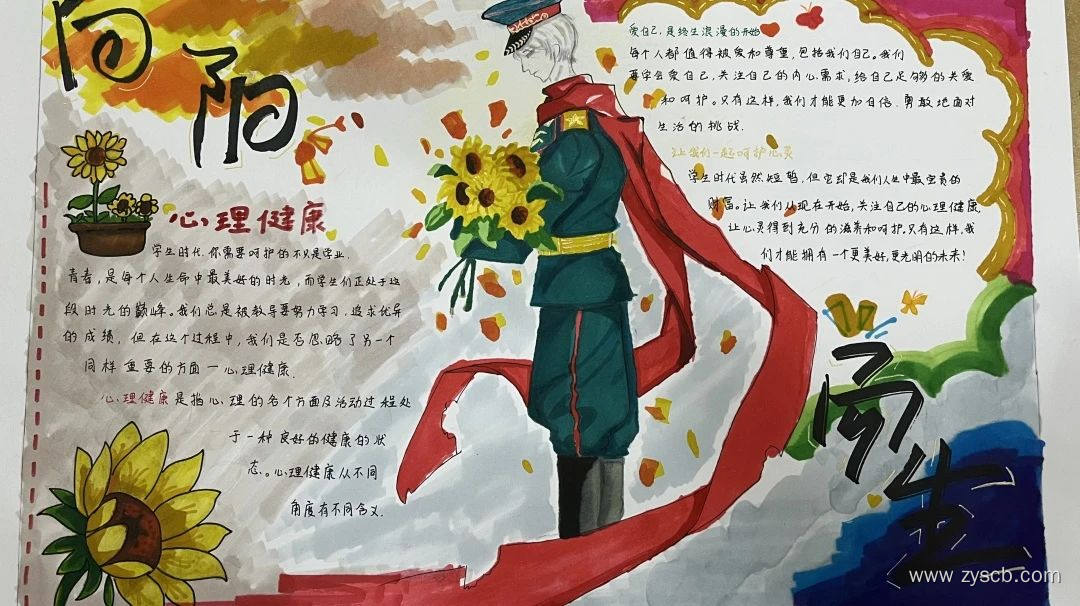 向
阳
心理健康
学生时代,你需要呵护的不只是学业.
青春,是每个人生命中最美好的时光,而学生们正处于这
段时光的巅峰。我们总是被教导要努力学习,追求优异
的成绩,但在这个过程中,我们是否忽略了另一个
同样重要的方面一心理健康.
心理健康是指心理的各个方面及活动过程处
于一种良好的健康的状
态。心理健康从不同
角度有不同含义.
爱自己,是终生浪漫的开始
每个人都值得被爱和尊重,包括我们自己。我们
要学会爱自己,关注自己的内心需求,给自己足够的关爱
和呵护。只有这样,我们才能更加自信、勇敢地面对
生活的挑战.
让我们一起呵护心灵
学生时代虽然短暂,但它却是我们人生中最宝贵的
财富。让我们从现在开始,关注自己的心理健康,
让心灵得到充分的滋养和呵护。只有这样,我
们才能拥有一个更美好,更光明的未来!
向
生
www.zyscb.com